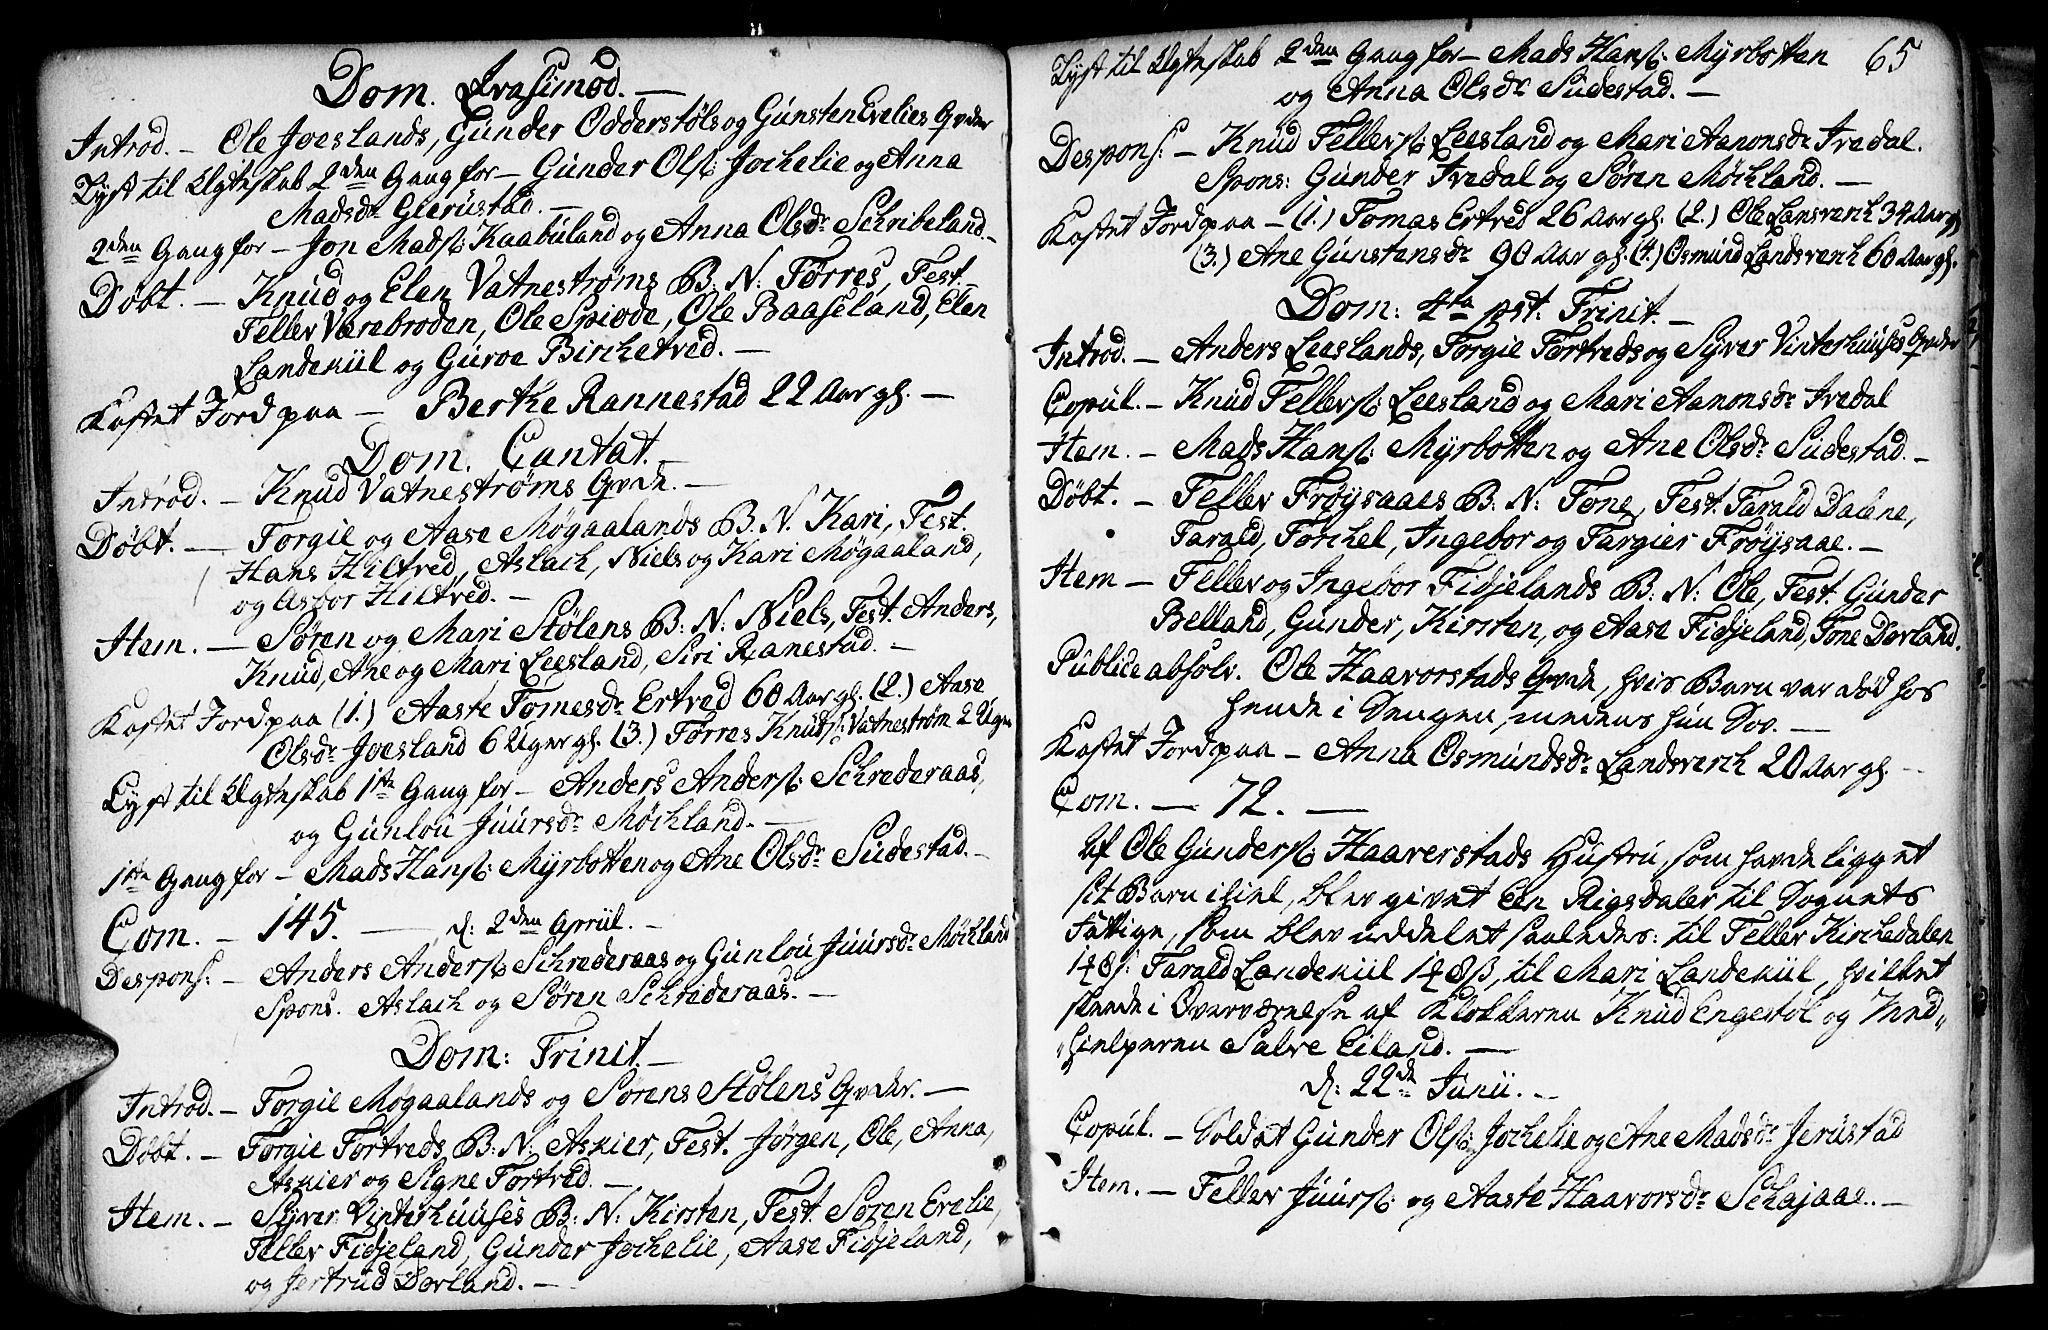 Dom. Qvasimod. —
Introd. — Ole Joeslands, Gunder Odderstøls og Gunsten Evelies Qvder
Lyst til Ægteskab 2den Gang for — Gunder Olss: Jochelie og Anna
Madsdr Gierustad. —
2den Gang for — Jon Madss: Kaabuland og Anna Olsdr Schribeland. —
Døbt. — Knud og Elen Vatnestrøms B. N. Tørres, Test.
Tellev Varebroden, Ole Spiøde, Ole Baaseland, Elen
Landekiil og Guroe Birchetved. —
Kastet Jord paa — Berthe Rannestad 22 Aar gl. —
Dom. Cantat. —
Introd. — Knud Vatnestrøms Qvde. —
Døbt. — Torgie og Aase Møgaalands B. N. Kari, Test.
Hans Hiltved, Aslach, Niels og Kari Møgaaland,
og Asbor Hiltved. —
Item. — Søren og Mari Stølens B: N: Niels, Test. Anders,
Knud, Ane og Mari Leesland, Siri Ranestad. —
Kastet Jord paa (1.) Aaste Tomesdr Ertved 60 Aar gl. (2.) Aase
Olsdr Joesland 6 Uger gl. (3.) Tørres Knuds: Vatnestrøm 2 Uger
Lyst til Ægteskab 1ste Gang for — Anders Anderss: Schrederaas,
og Gunlou Juursdr Møchland. —
1ste Gang for — Mads Hanss: Myrbotten og Ane Olsdr Sudestad. —
Com. — 145. — d: 2den Apriil. —
Despons: — Anders Anderss: Schrederaas og Gunlou Juursdr Møchland
Spons. Aslach og Søren Schrederaas. —
Dom: Trinit. —
Introd. — Torgie Møgaalands og Sørens Stølens Qvder. —
Døbt. — Torgie Tortveds B: N: Askier, Test. Jørgen, Ole, Anna,
Askier og Signe Tortved. —
Item. — Syver Vinterhuuses B: N: Kirsten, Test. Søren Evelie,
Tellev Fidjeland, Gunder Jochelie, Aase Fidjeland,
og Jertrud Dorland. —
65
Lyst til Ægteskab 2den Gang for — Mads Hanss: Myrbotten
og Anna Olsdr Sudestad. —
Despons: — Knud Tellevss: Leesland og Mari Aanonsdr Ivedal.
Spons: Gunder Ivedal og Søren Møchland. —
Kastet Jord paa — (1.) Tomas Ertved 26 Aar gl. (2.) Ole Lansverch 34 Aar gl
(3.) Ane Gunstensdr 90 Aar gl. (4.) Osmund Landsverch 60 Aar gl.
Dom: 4ta pst: Trinit. —
Introd. — Anders Leeslands, Torgie Tortveds og Syver Vinterhuuses Qvder
Copul. — Knud Tellevss: Leesland og Mari Aanonsdr Ivedal
Item. — Mads Hanss: Myrbotten og Ane Olsdr Sudestad. —
Døbt. — Tellev Frøysaaes B: N: Tone, Test. Tarald Dalene,
Tarald, Torchel, Ingebor og Targier Frøysaae. —
Item — Tellev og Ingebor Fidjelands B: N: Ole, Test. Gunder
Belland, Gunder, Kirsten, og Aase Fidjeland, Tone Dorland.
Publice absolv. Ole Haavorstads Qvde, hvis Barn var død hos
hende i Sengen, medens hun Sov. —
Kastet Jord paa — Anna Osmundsdr Landsverch 20 Aar gl. —
Com. — 72. —
Af Ole Gunderss: Haaverstads Hustru, som havde ligget
sit Barn ihiel, blev givet Een Rigsdaler til Sognets
Fattige, som blev uddelet saaledes: til Tellev Kirchedalen
1 4 8 s: Tarald Landekiil 1 4 8 ß, til Mari Landekiil, hvilket
skeede i Overværelse af Klokkeren Knud Engestøl og Med„
„hielperen Salve Eiland. —
d: 22de Junii. —
Copul. — Soldat Gunder Olss: Jochelie og Ane Madsdr Jerustad
Item. — Tellev Juurss: og Aaste Haavorsdr Schajaae. —